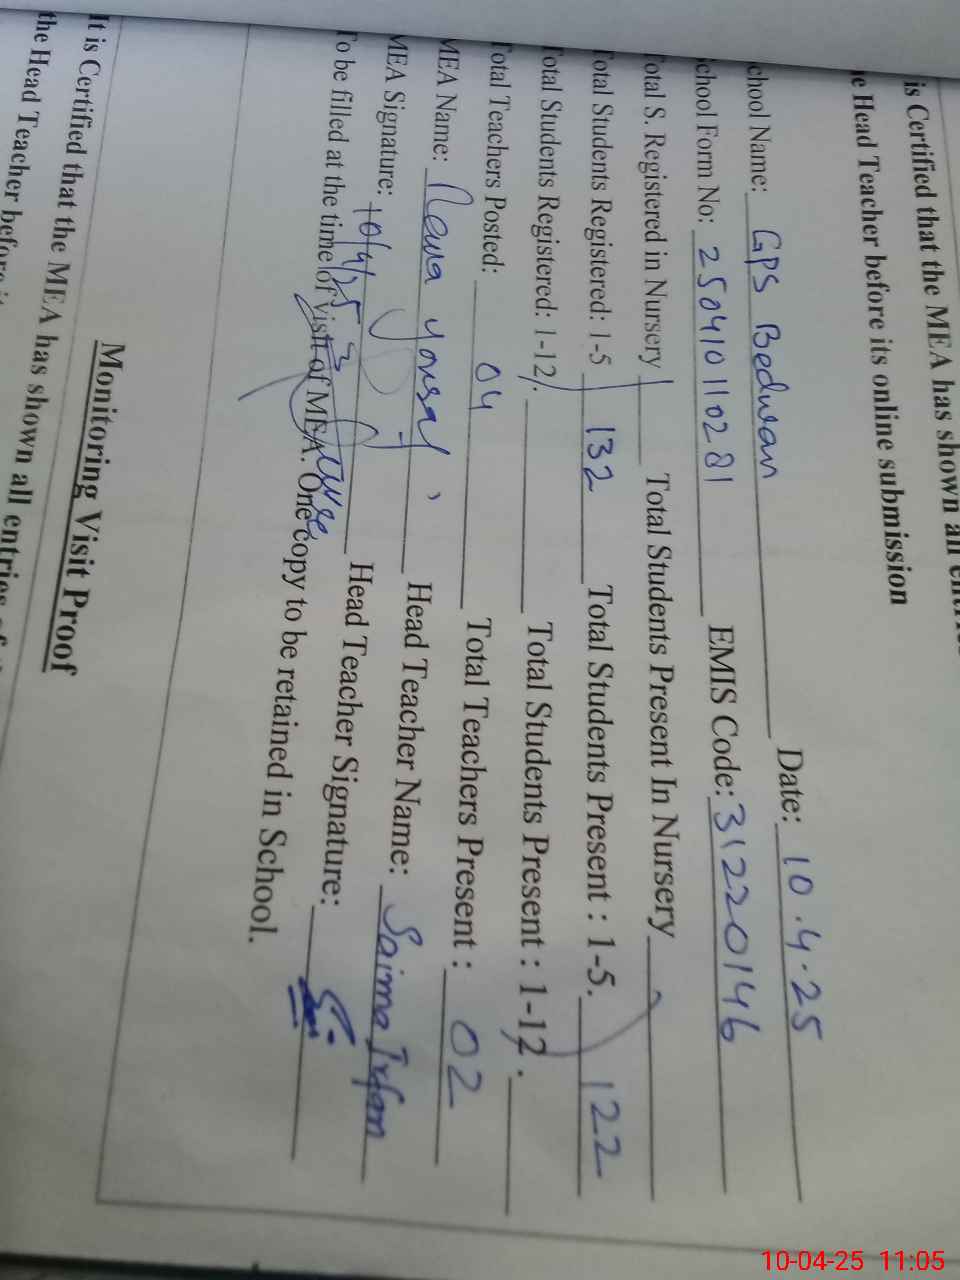 is Certified that the MEA has shown all entries
e Head Teacher before its online submission
chool Name: GPS Bedwan Date: 10.4.25
chool Form No: 25041011 0281 EMIS Code: 31220146
otal S. Registered in Nursery Total Students Present In Nursery
otal Students Registered: 1-5 132 Total Students Present : 1-5. 122
otal Students Registered: 1-12. Total Students Present : 1-12.
otal Teachers Posted: 04 Total Teachers Present : 02
MEA Name: Head Teacher Name: Saima Irfam
MEA Signature: 10/4/25 Head Teacher Signature:
To be filled at the time of Visit of MEA. One copy to be retained in School.
Monitoring Visit Proof
It is Certified that the MEA has shown all entries of
the Head Teacher before it
10-04-25 11:05